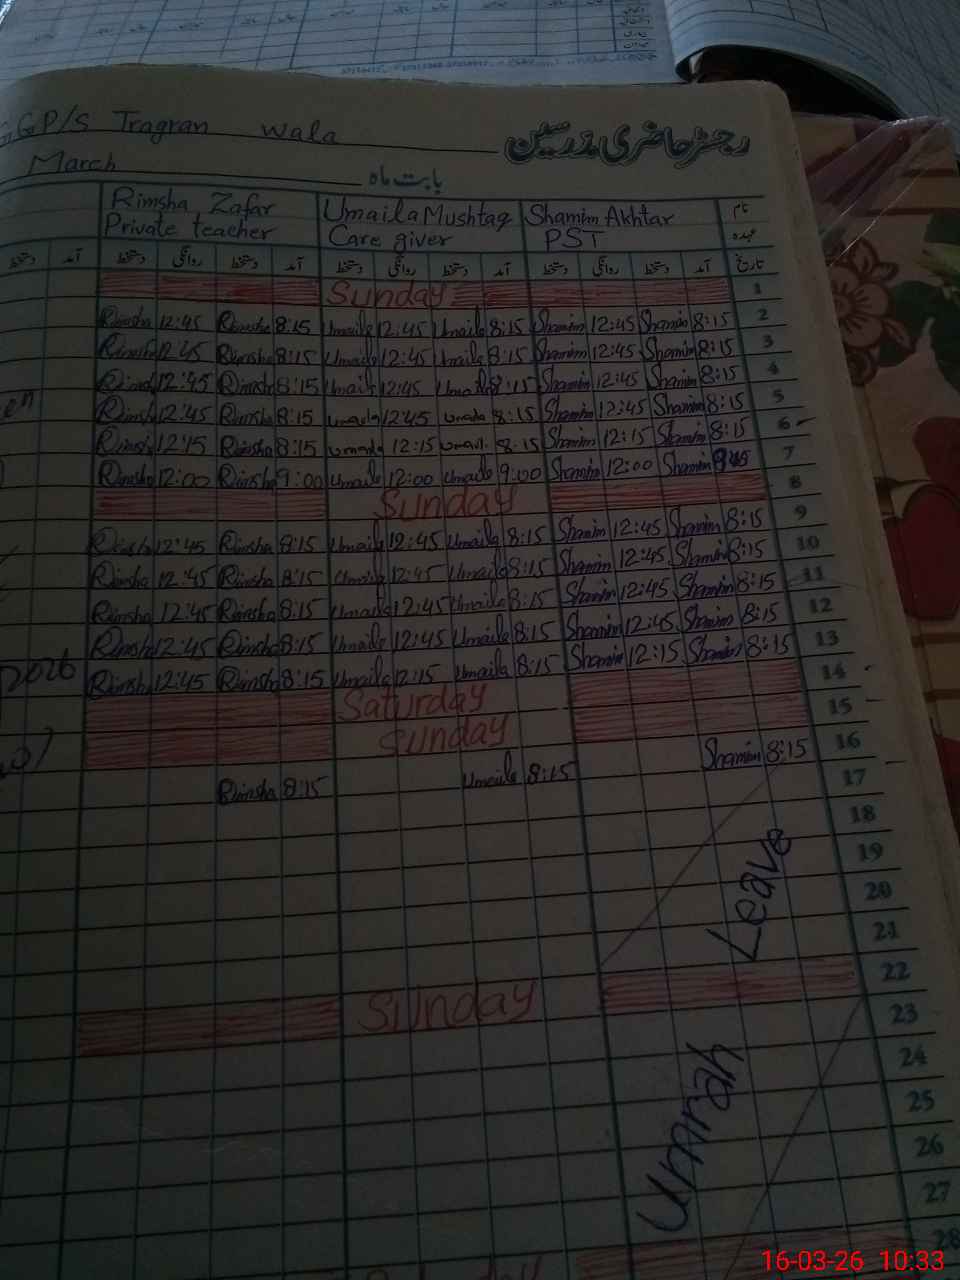 GP/S Tragran wala رجسٹر حاضری مدرسین
March بابت ماہ
Rimsha Zafar Umaila Mushtaq Shamim Akhtar نام
Private teacher Care giver PST عہدہ
دستخط آمد دستخط روانگی دستخط آمد دستخط روانگی دستخط آمد دستخط روانگی دستخط آمد تاریخ
Sunday 1
Rimsha 12:45 Rimsha 8:15 Umaila 12:45 Umaila 8:15 Shamim 12:45 Shamim 8:15 2
Rimsha 12:45 Rimsha 8:15 Umaila 12:45 Umaila 8:15 Shamim 12:45 Shamim 8:15 3
Rimsha 12:45 Rimsha 8:15 Umaila 12:45 Umaila 8:15 Shamim 12:45 Shamim 8:15 4
Rimsha 12:45 Rimsha 8:15 Umaila 12:45 Umaila 8:15 Shamim 12:45 Shamim 8:15 5
Rimsha 12:15 Rimsha 8:15 Umaila 12:15 Umaila 8:15 Shamim 12:15 Shamim 8:15 6
Rimsha 12:00 Rimsha 9:00 Umaila 12:00 Umaila 9:00 Shamim 12:00 Shamim 7
Sunday 8
Rimsha 12:45 Rimsha 8:15 Umaila 12:45 Umaila 8:15 Shamim 12:45 Shamim 8:15 9
Rimsha 12:45 Rimsha 8:15 Umaila 12:45 Umaila 8:15 Shamim 12:45 Shamim 8:15 10
Rimsha 12:45 Rimsha 8:15 Umaila 12:45 Umaila 8:15 Shamim 12:45 Shamim 8:15 11
Rimsha 12:45 Rimsha 8:15 Umaila 12:45 Umaila 8:15 Shamim 12:45 Shamim 8:15 12
2026 Rimsha 12:45 Rimsha 8:15 Umaila 12:15 Umaila 8:15 Shamim 12:15 Shamim 8:15 13
Saturday 14
Sunday 15
Rimsha 8:15 Umaila 8:15 Shamim 8:15 16
17
18
19
20
21
Sunday 22
23
24
25
26
27
28
Umrah Leave
16-03-26 10:33